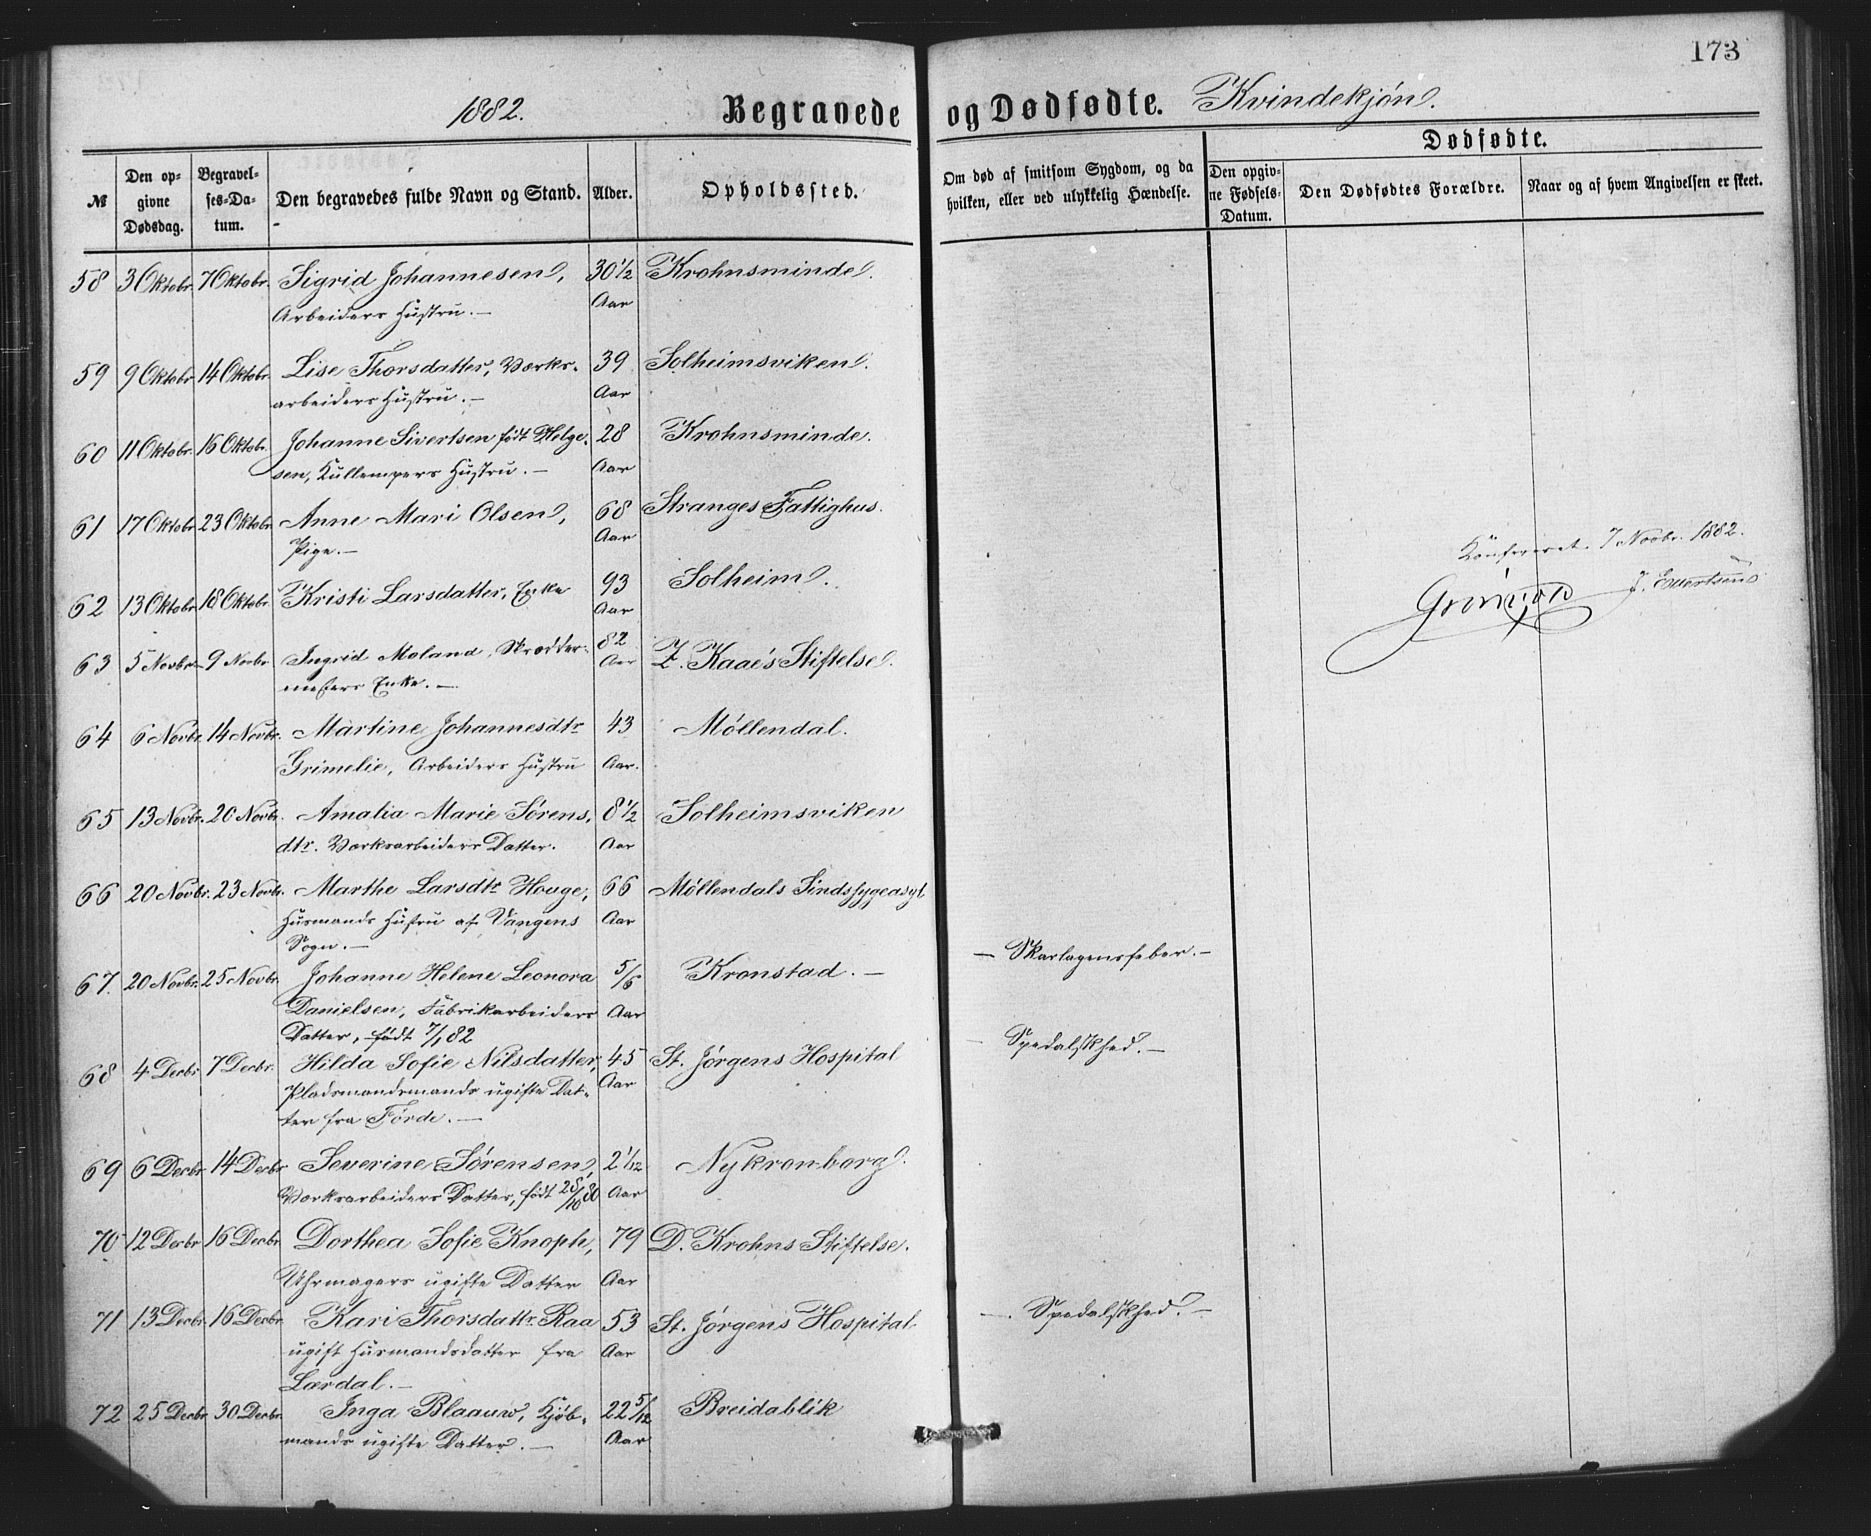 173
1882. Begravede og Dødfødte. Kvindekjøn.
№ Den opgivne Dødsdag. Begravelses-Datum. Den begravedes fulde Navn og Stand. Alder. Opholdssted. Om død af smitsom Sygdom, og da hvilken, eller ved ulykkelig Hændelse. Dødfødte.
Den opgivne Fødsels-Datum. Den Dødfødtes Forældre. Naar og af hvem Angivelsen er skeet.
58 3 Oktobr. 7 Oktobr. Sigrid Johannesen, 30 1/2 Krohnsminde.
Arbeiders Hustru. — Aar
59 9 Oktobr 14 Oktobr. Lise Thorsdatter, Værks- 39 Solheimsviken.
arbeiders Hustru. — Aar
60 11 Oktobr. 16 Oktobr. Johanne Sivertsen født Helge- 28 Krohnsminde.
sen, Kullempers Hustru. — Aar
61 17 Oktobr 23 Oktobr. Anne Mari Olsen, 68 Stranges Fattighus.
Pige. — Aar
Konfereret 7 Novbr. 1882.
62 13 Oktobr 18 Oktobr. Kristi Larsdatter, Enke 93 Solheim.
Aar
63 5 Novbr. 9 Novbr Ingrid Moland, Skrædder- 82 Z. Kaaes Stiftelse.
mesters Enke. — Aar
64 6 Novbr. 14 Novbr. Martine Johannesdtr 43 Møllendal.
Grimelie, Arbeiders Hustru Aar.
65 13 Novbr. 20 Novbr. Amalia Marie Sørens- 8 1/2 Solheimsviken
dtr. Værksarbeiders Datter. Aar
66 20 Novbr. 23 Novbr. Marthe Larsdtr Houge, 66 Møllendals Sindssygeasyl
Husmands Hustru af Vangens Aar
Sogn. —
67. 20 Novbr. 25 Novbr. Johanne Helene Leonora 5/6 Kronstad. — — Skarlagensfeber. —
Danielsen, Fabrikarbeiders Aar
Datter, født 7/1 82
68 4 Decbr 7 Decbr. Hilda Sofie Nilsdatter, 45 St. Jørgens Hospital — Spedalskhed. —
Pladsmandsmands ugifte Dat- Aar
ter fra Førde. —
69 6 Decbr 14 Decbr Severine Sørensen, 2 1/12 Nykronborg.
Værksarbeiders Datter, født 28/10 80 Aar
70 12 Decbr 16 Decbr. Dorthea Sofie Knoph, 79 D. Krohns Stiftelse.
Uhrmagers ugifte Datter Aar
71 13 Decbr. 16 Decbr. Kari Thorsdattr. Raa 53 St. Jørgens Hospital — Spedalskhed. —
ugift Husmandsdatter fra Aar
Lærdal. —
72 25 Decbr. 30 Decbr. Inga Blaauw, Kjøb- 22 5/12 Breidablik
mands ugifte Datter. — Aar